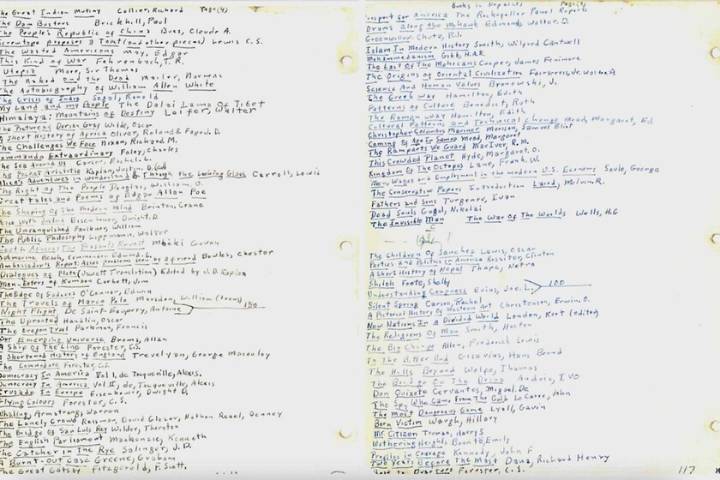 The Great Indian Mutiny Collier, Richard Page (4)
The Dam Busters Brickhill, Paul
The People's Republic of China Buss, Claude A.
Screwtape proposes a Toast (and other pieces) Lewis C.S.
The Wasted Americans May, Edgar
This Kind of War Fehrenbach, T.R.
Utopia More, Sir Thomas
The Naked and the Dead Mailer, Norman
The Autobiography of William Allen White
The Crisis of India Segal, Ronald
My Land and My People The Dalai Lama of Tibet
Himalaya: Mountains of Destiny Laifer, Walter
The Picture of Dorian Gray Wilde, Oscar
A Short History of Africa Oliver, Roland & Fage J.D.
The Challenges We Face Nixon, Richard M.
Commando Extraordinary Foley, Charles
The Sea Around Us Carson, Rachel
The Portable Aristotle Kaplan, Justin D.
Alice's Adventures in Wonderland & Through the Looking Glass Carroll, Lewis
The Right of The People Douglas, William O.
Great tales and Poems of Edgar Allan Poe
The Shaping of The Modern Mind Brinton, Crane
Eisenhower, Dwight D.
The Unvanquished Faulkner, William
The Public Philosophy Lippmann, Walter
South Africa: The Peasants Revolt Mbeki Govan
Submarine Beach, Commander Edward L.
Ambassador's Report Bowles, Chester
Dialogues of Plato (Jowett Translation) Edited by J.D. Kaplan
Man-Eaters of Kumaon Corbett, Jim
The Edge of Sadness O'Connor, Edwin
The Travels of Marco Polo Marsden, William (trans)
Night Flight De Saint-Exupery, Antoine 150
The Uprooted Handlin, Oscar
The Oregon Trail Parkman, Francis
Our Emerging Universe Broms, Allan
The Ship Forester, C.S.
A Shortened History of England Trevelyan, George Macauley
The Commodore Forester, C.S.
Democracy In America Vol I, de Tocqueville, Alexis.
Democracy In America Vol II, de, Tocqueville, Alexis
Crusade In Europe Eisenhower, Dwight D.
Flying Colours Forester, C.S.
Whaling, Armstrong, Warren
The Lonely Crowd Reisman, David Glazer, Nathan Reuel, Denney
The Bridge of San Luis Rey Wilder, Thornton
The English Parliament Mackenzie, Kenneth
The Catcher In The Rye Salinger, J.D.
A Burnt-Out Case Greene, Graham
The Great Gatsby Fitzgerald, F. Scott.
Books in Repairs Page (5)
Prospect For America The Rockefeller Panel Reports
Drums Along the Mohawk Edmonds, Walter D.
Greenwillow Chute, B.J.
Islam In Modern History Smith, Wilfred Cantwell
Mohammedanism Gibb, H.A.R.
The Last Of The Mohicans Cooper, James Fenimore
The Origins of Oriental Civilization Fairservis, Jr. Walter A
Science And Human Values Bronowski, J.
The Greek Way Hamilton, Edith
Patterns of Culture Benedict, Ruth
The Roman Way Hamilton, Edith
Cultural Patterns and Technical Change Mead, Margaret, Ed
Christopher Columbus, Mariner Morison, Samuel Eliot
Coming of Age In Samoa Mead, Margaret
The Ramparts We Guard MacIver, R.M.
This Crowded Planet Hyde, Margaret, O.
Kingdom Of The Octopus Lane, Frank W.
Wages and Employment in the modern U.S. Economy Soule, George
The Conservative Papers Introduction Laird, Melvin R.
Fathers and Sons Turgenev, Ivan
Dead Souls Gogol, Nikolai
The Invisible Man The War of The Worlds Wells, H.G
The Children Of Sanchez Lewis, Oscar
Parties and Politics in America Rossiter, Clinton
A Short History of Nepal Thapa, Netra
Shiloh Foote, Shelby
Understanding Congress Evins, Joe L. 100
Silent Spring Carson, Rachel
A Pictorial History Of Western Art Christensen, Erwin O.
New Nations In a Divided World London, Kurt (editor)
The Religions of Man Smith, Huston
The Big Change Allen, Frederick Lewis
To The Bitter End Gisevius, Hans Bernd
The Hills Beyond Wolfe, Thomas
The Bridge On The Drina Andric, IVO
Don Quixote Cervantes, Miguel De
The Spy Who Came From The Cold Le Carre, John
The Most Dangerous Game Lyall, Gavin
Born Victim Waugh, Hillary
Mr Citizen Truman, Harry S
Wuthering Heights, Bronte, Emily
Profiles in Courage Kennedy, John F
Two Years Before The Mast Dana, Richard Henry
Forester, C.S. 117